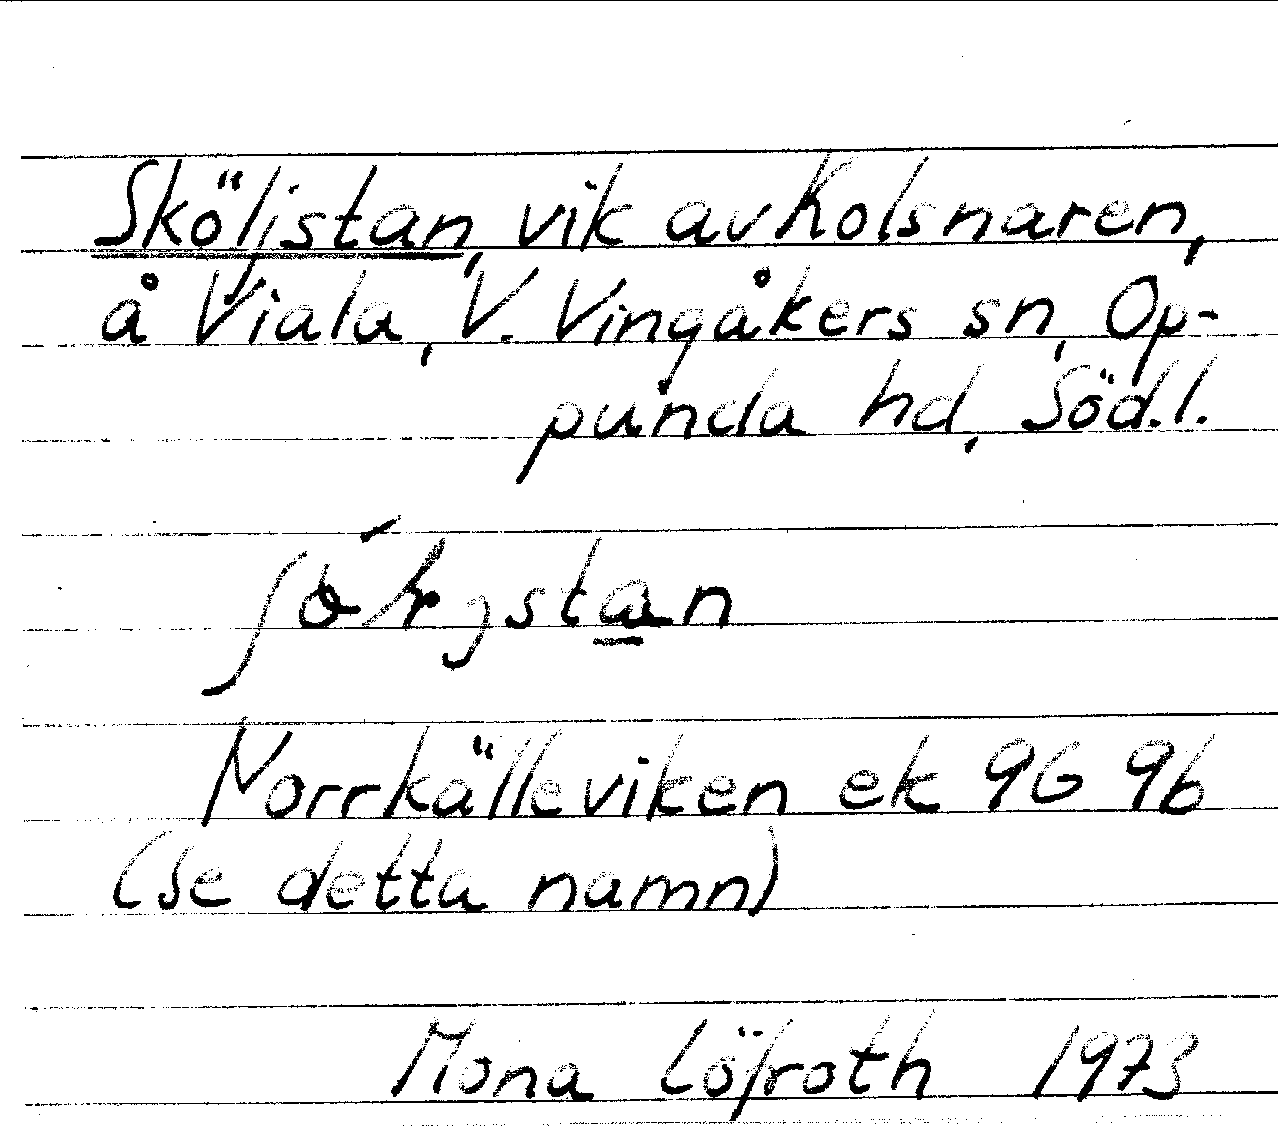 Sköljstan, vik av Kolsnaren,
å Viala, V. Vingåkers sn, Op-
punda hd, Söd.l.
Norrkälleviken ek 9G 9b
(se detta namn)
Mona Löfroth 1973